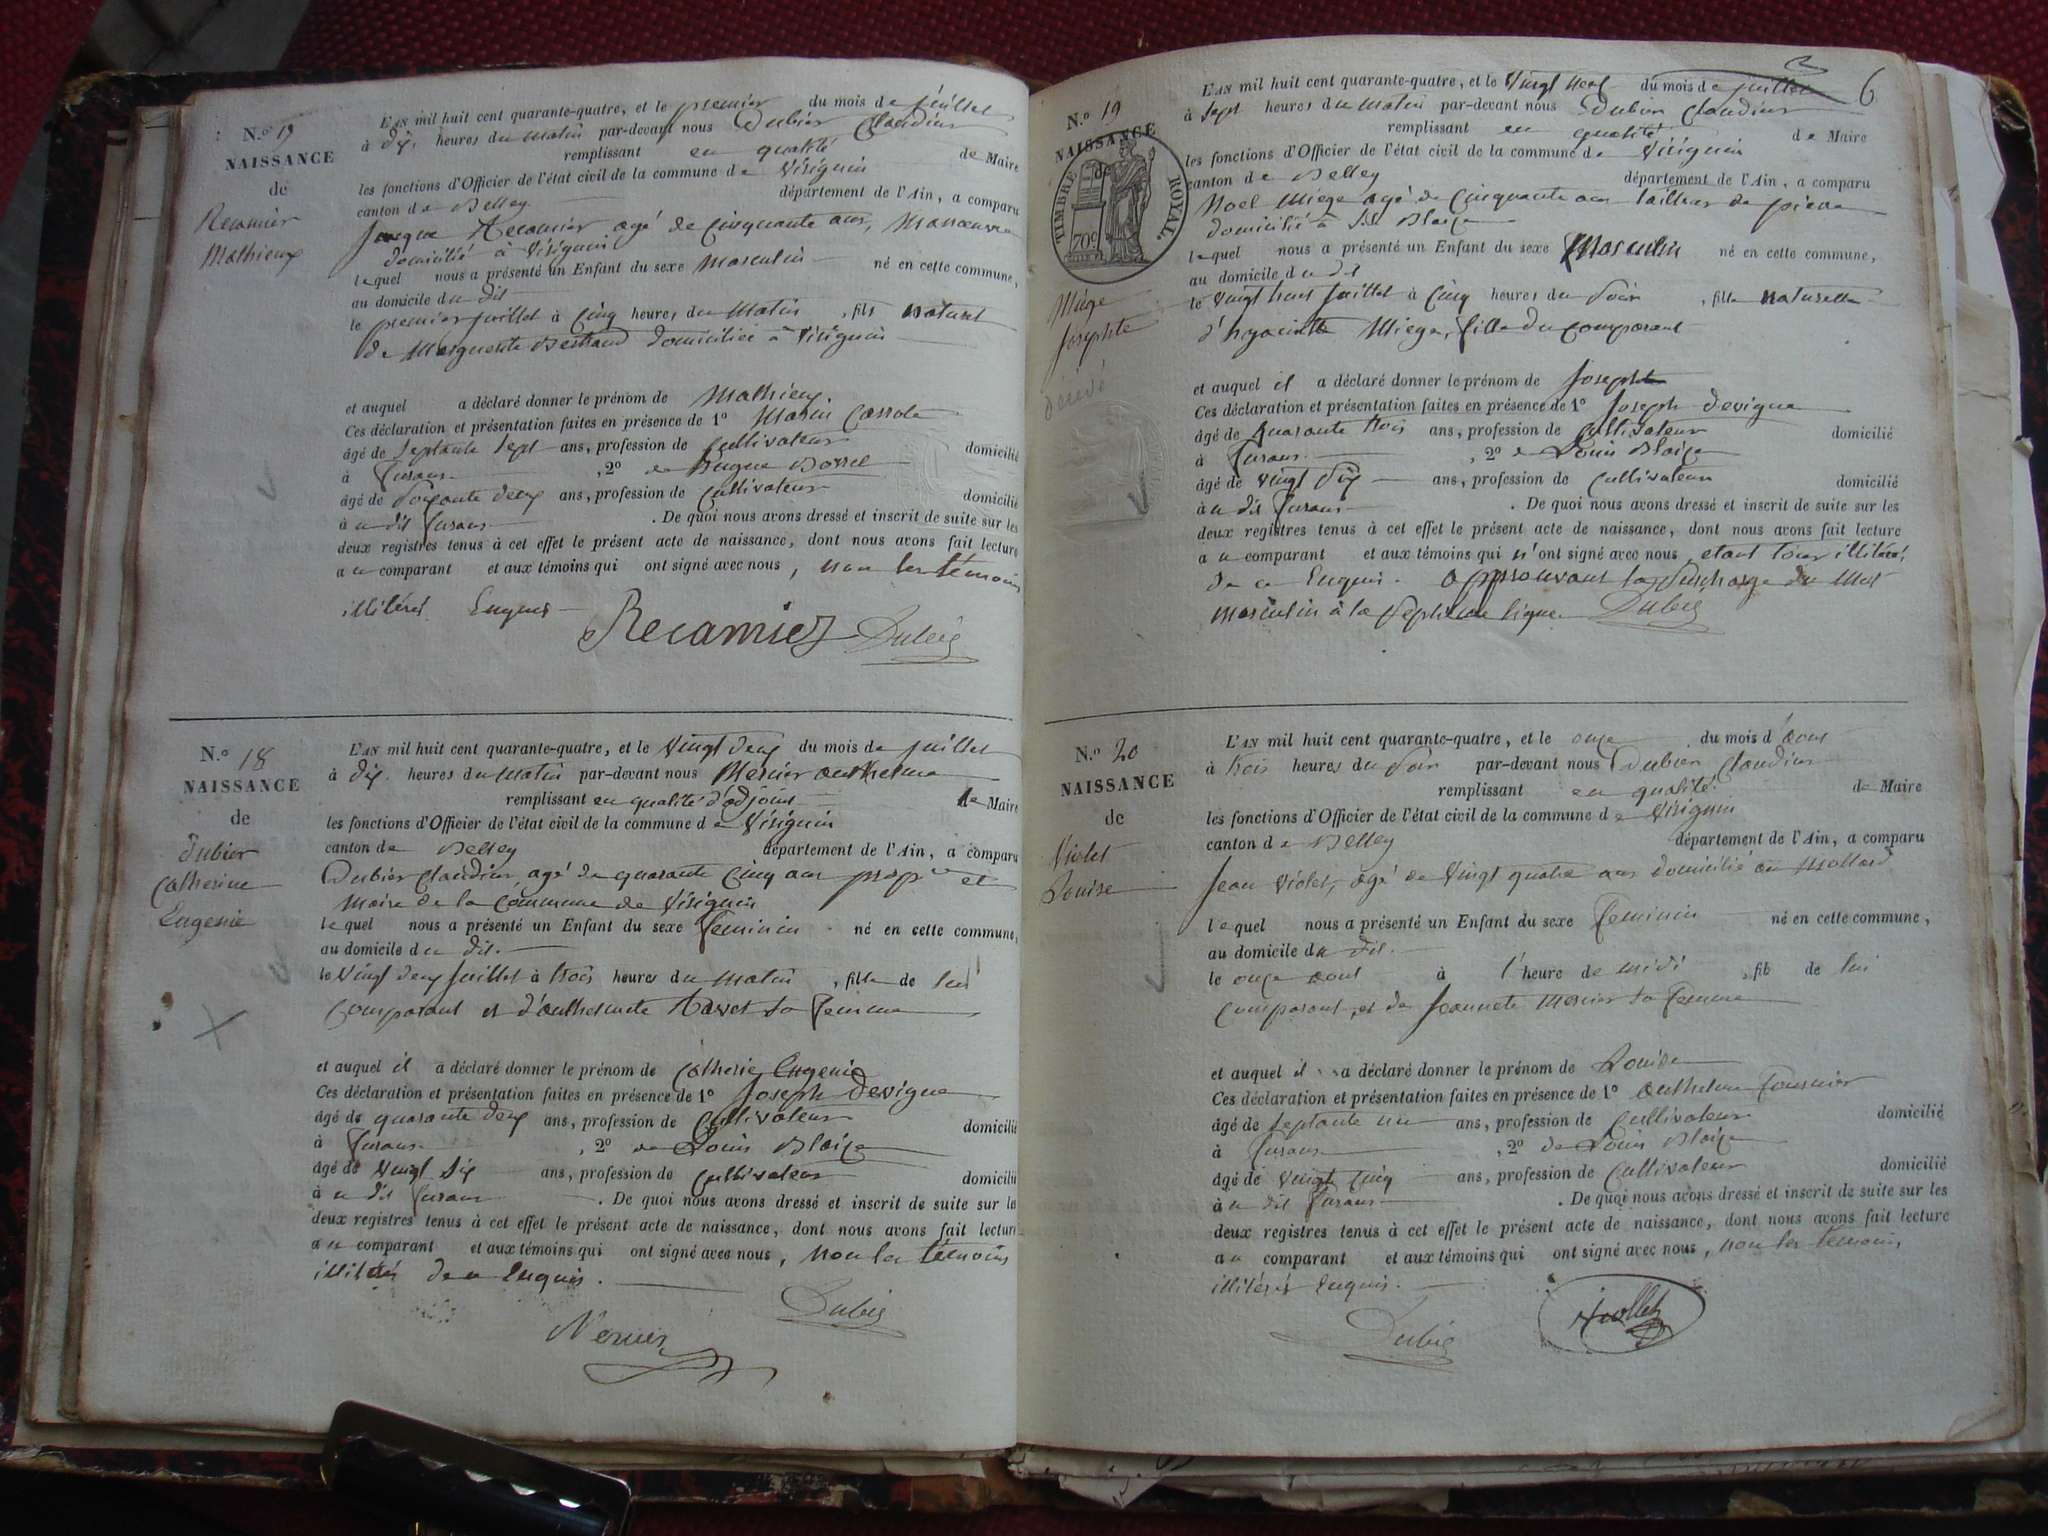 N.o 19
NAISSANCE
de
Recamier
Mathieux
L'AN mil huit cent quarante-quatre, et le premier du mois de juillet
à dix heures du matin par-devant nous Dubier Claudius
remplissant en qualité de Maire
les fonctions d'Officier de l'état civil de la commune de Virignin
canton de Belley département de l'Ain, a comparu
Recamier agé de cinquante ans, Manoeuvre
domicilié à Virignin
lequel nous a présenté un Enfant du sexe Masculin né en cette commune,
au domicile du dit
le premier juillet à cinq heures du Matin, fils naturel
de Marguerite Bertrand domiciliée à Virignin
et auquel a déclaré donner le prénom de Mathieux.
Ces déclaration et présentation faites en présence de 1o Marin
âgé de septante sept ans, profession de cultivateur domicilié
à furans, 2o de
âgé de soixante deux ans, profession de cultivateur domicilié
à u dit furans. De quoi nous avons dressé et inscrit de suite sur les
deux registres tenus à cet effet le présent acte de naissance, dont nous avons fait lecture
au comparant et aux témoins qui ont signé avec nous, non les témoins
illitérés Enquis
Recamier Dubier
N.o 18
NAISSANCE
de
Dubier
Catherine
Eugenie
L'AN mil huit cent quarante-quatre, et le vingt deux du mois de juillet
à dix heures du matin par-devant nous Mercier anthelme
remplissant en qualité d'adjoint de Maire
les fonctions d'Officier de l'état civil de la commune de Virignin
canton de Belley département de l'Ain, a comparu
Dubier Claudius agé de quarante cinq ans propre et
Maire de la Commune de Virignin
lequel nous a présenté un Enfant du sexe feminin né en cette commune,
au domicile du dit.
le vingt deux juillet à trois heures du matin, fille de lui
comparant et d'anthelmette sa femme
et auquel il a déclaré donner le prénom de Catherie Eugenie
Ces déclaration et présentation faites en présence de 1o Joseph Devigne
âgé de quarante deux ans, profession de cultivateur domicilié
à furans, 2o de Louis Blaize
âgé de vingt six ans, profession de cultivateur domicilié
à u dit furans. De quoi nous avons dressé et inscrit de suite sur les
deux registres tenus à cet effet le présent acte de naissance, dont nous avons fait lecture
au comparant et aux témoins qui ont signé avec nous, non les témoins
illitérés de ce Enquis.
Dubier
Mercier
6
N.o 19
NAISSANCE
de
TIMBRE ROYAL.
70c
Miége
Josephte
L'AN mil huit cent quarante-quatre, et le vingt neuf du mois de juillet
à sept heures du matin par-devant nous Dubier Claudius
remplissant en qualité de Maire
les fonctions d'Officier de l'état civil de la commune de Virignin
canton de Belley département de l'Ain, a comparu
Noel Miége agé de cinquante ans tailleur de pierre
domicilié à St Blaize
lequel nous a présenté un Enfant du sexe Masculin né en cette commune,
au domicile du dit
le vingt huit juillet à cinq heures du soir, fille naturelle
d'hyacinthe Miege, fille du comparant
et auquel il a déclaré donner le prénom de Josephte
Ces déclaration et présentation faites en présence de 1o Joseph Devigne
âgé de quarante trois ans, profession de cultivateur domicilié
à furans, 2o de Louis Blaize
âgé de vingt six ans, profession de cultivateur domicilié
à u dit furans. De quoi nous avons dressé et inscrit de suite sur les
deux registres tenus à cet effet le présent acte de naissance, dont nous avons fait lecture
au comparant et aux témoins qui n'ont signé avec nous, etant tous illitérés
de ce Enquis. approuvant la surcharge du mot
masculin à la septieme ligne. Dubier
N.o 20
NAISSANCE
de
Violet
Louise
L'AN mil huit cent quarante-quatre, et le onze du mois d'aout
à trois heures du soir par-devant nous Dubier Claudius
remplissant en qualité de Maire
les fonctions d'Officier de l'état civil de la commune de Virignin
canton de Belley département de l'Ain, a comparu
Jean Violet, agé de vingt quatre ans domicilié au Mollard
lequel nous a présenté un Enfant du sexe feminin né en cette commune,
au domicile du dit.
le onze aout à l'heure de midi, fils de lui
comparant, et de Jeannete Mercier sa femme
et auquel il a déclaré donner le prénom de Louise
Ces déclaration et présentation faites en présence de 1o anthelme fournier
âgé de septante un ans, profession de cultivateur domicilié
à furans, 2o de Louis Blaize
âgé de vingt cinq ans, profession de cultivateur domicilié
à u dit furans. De quoi nous avons dressé et inscrit de suite sur les
deux registres tenus à cet effet le présent acte de naissance, dont nous avons fait lecture
au comparant et aux témoins qui ont signé avec nous, non les temoins
illitérés Enquis.
Dubier